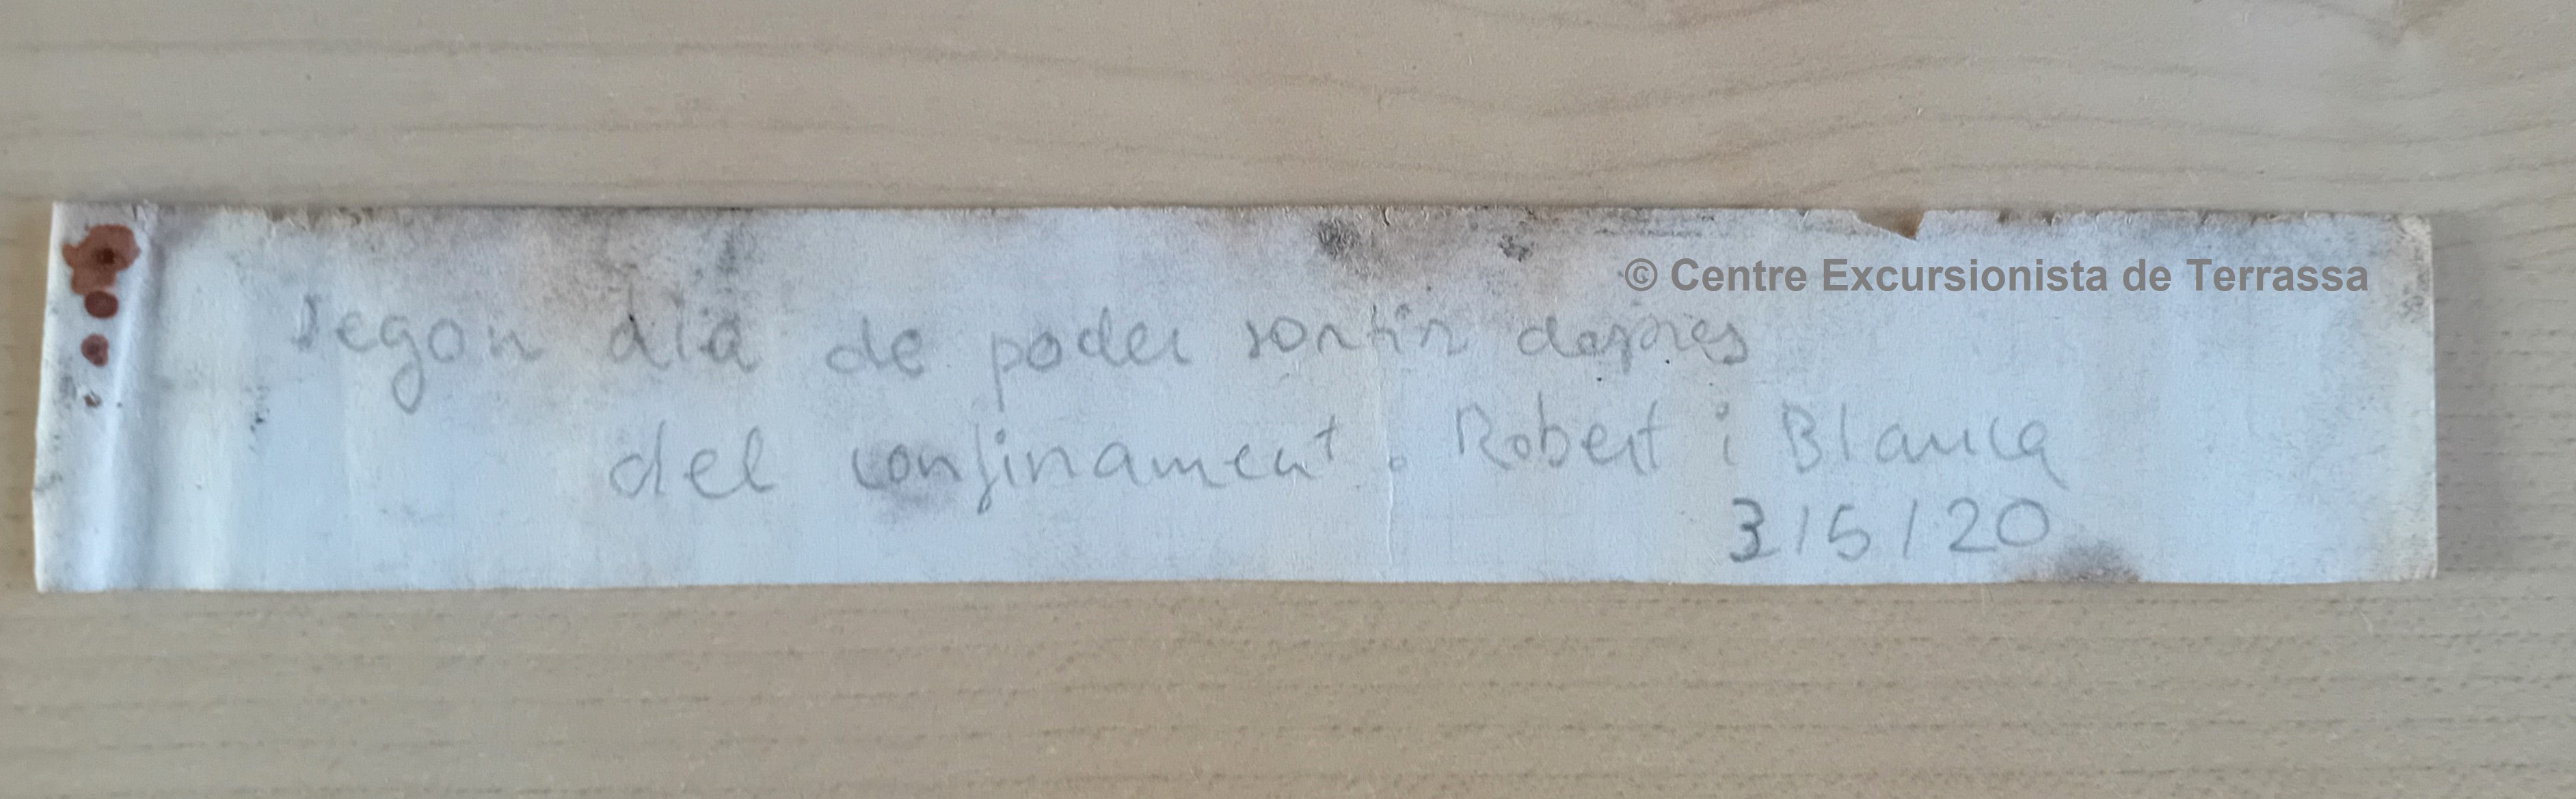 © Centre Excursionista de Terrassa
Segon dia de poder sortir despres
del confinament. Robert i Blanca
3/5/20